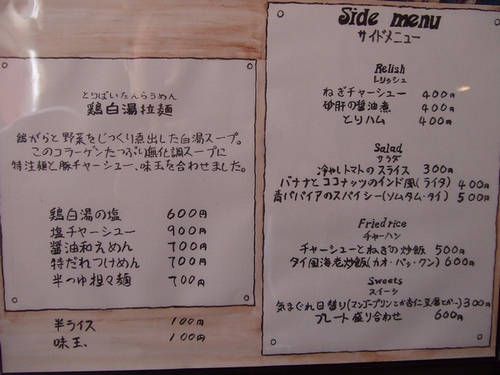 とりぱいたんらうめん
鶏白湯拉麺
鶏がらと野菜をじっくり煮出した白湯スープ。
このコラーゲンたっぷり無化調スープに
特注麺と豚チャーシュー、味玉を合わせました。
鶏白湯の塩 600円
塩チャーシュー 900円
醤油和えめん 700円
特だれつけめん 700円
半つゆ担々麺 700円
半ライス 100円
味玉 100円
Side menu
サイドメニュー
Relish
レリッシュ
ねぎチャーシュー 400円
砂肝の醤油煮 400円
とりハム 400円
Salad
サラダ
冷やしトマトのスライス 300円
バナナとココナッツのインド風(ライタ) 400円
青パパイアのスパイシー(ソムタム・タイ) 500円
Fried rice
チャーハン
チャーシューとねぎの炒飯 500円
タイ風海老炒飯(カオ・パッ・クン) 600円
Sweets
スイーツ
気まぐれ日替り(マンゴープリンとか杏仁豆腐とか) 300円
プレート盛り合わせ 600円